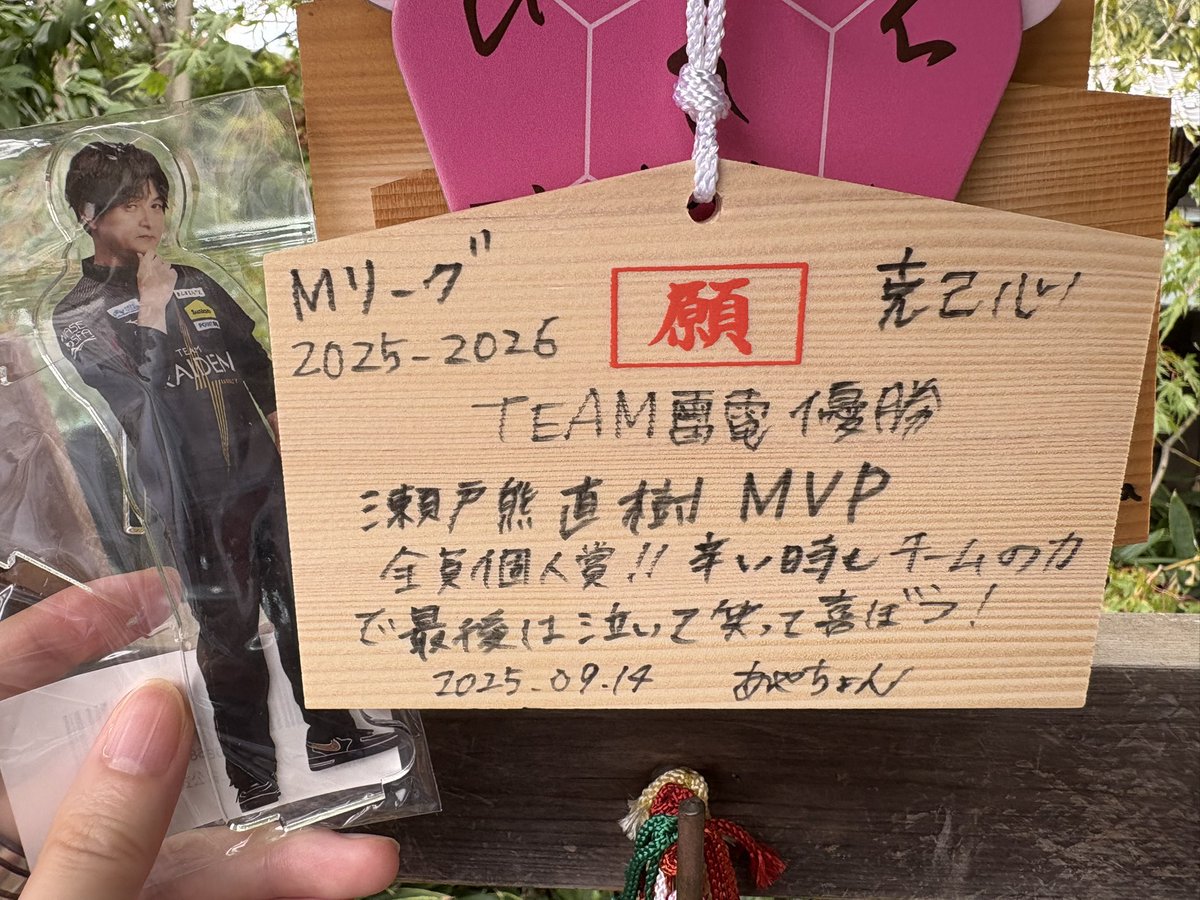 Mリーグ
2025-2026
願
克己心
TEAM雷電 優勝
瀬戸熊 直樹 MVP
全員個人賞!! 辛い時もチームの力
で最後は泣いて笑って喜ぼう!
2025.09.14 あやちょん
TEAM
RAIDEN